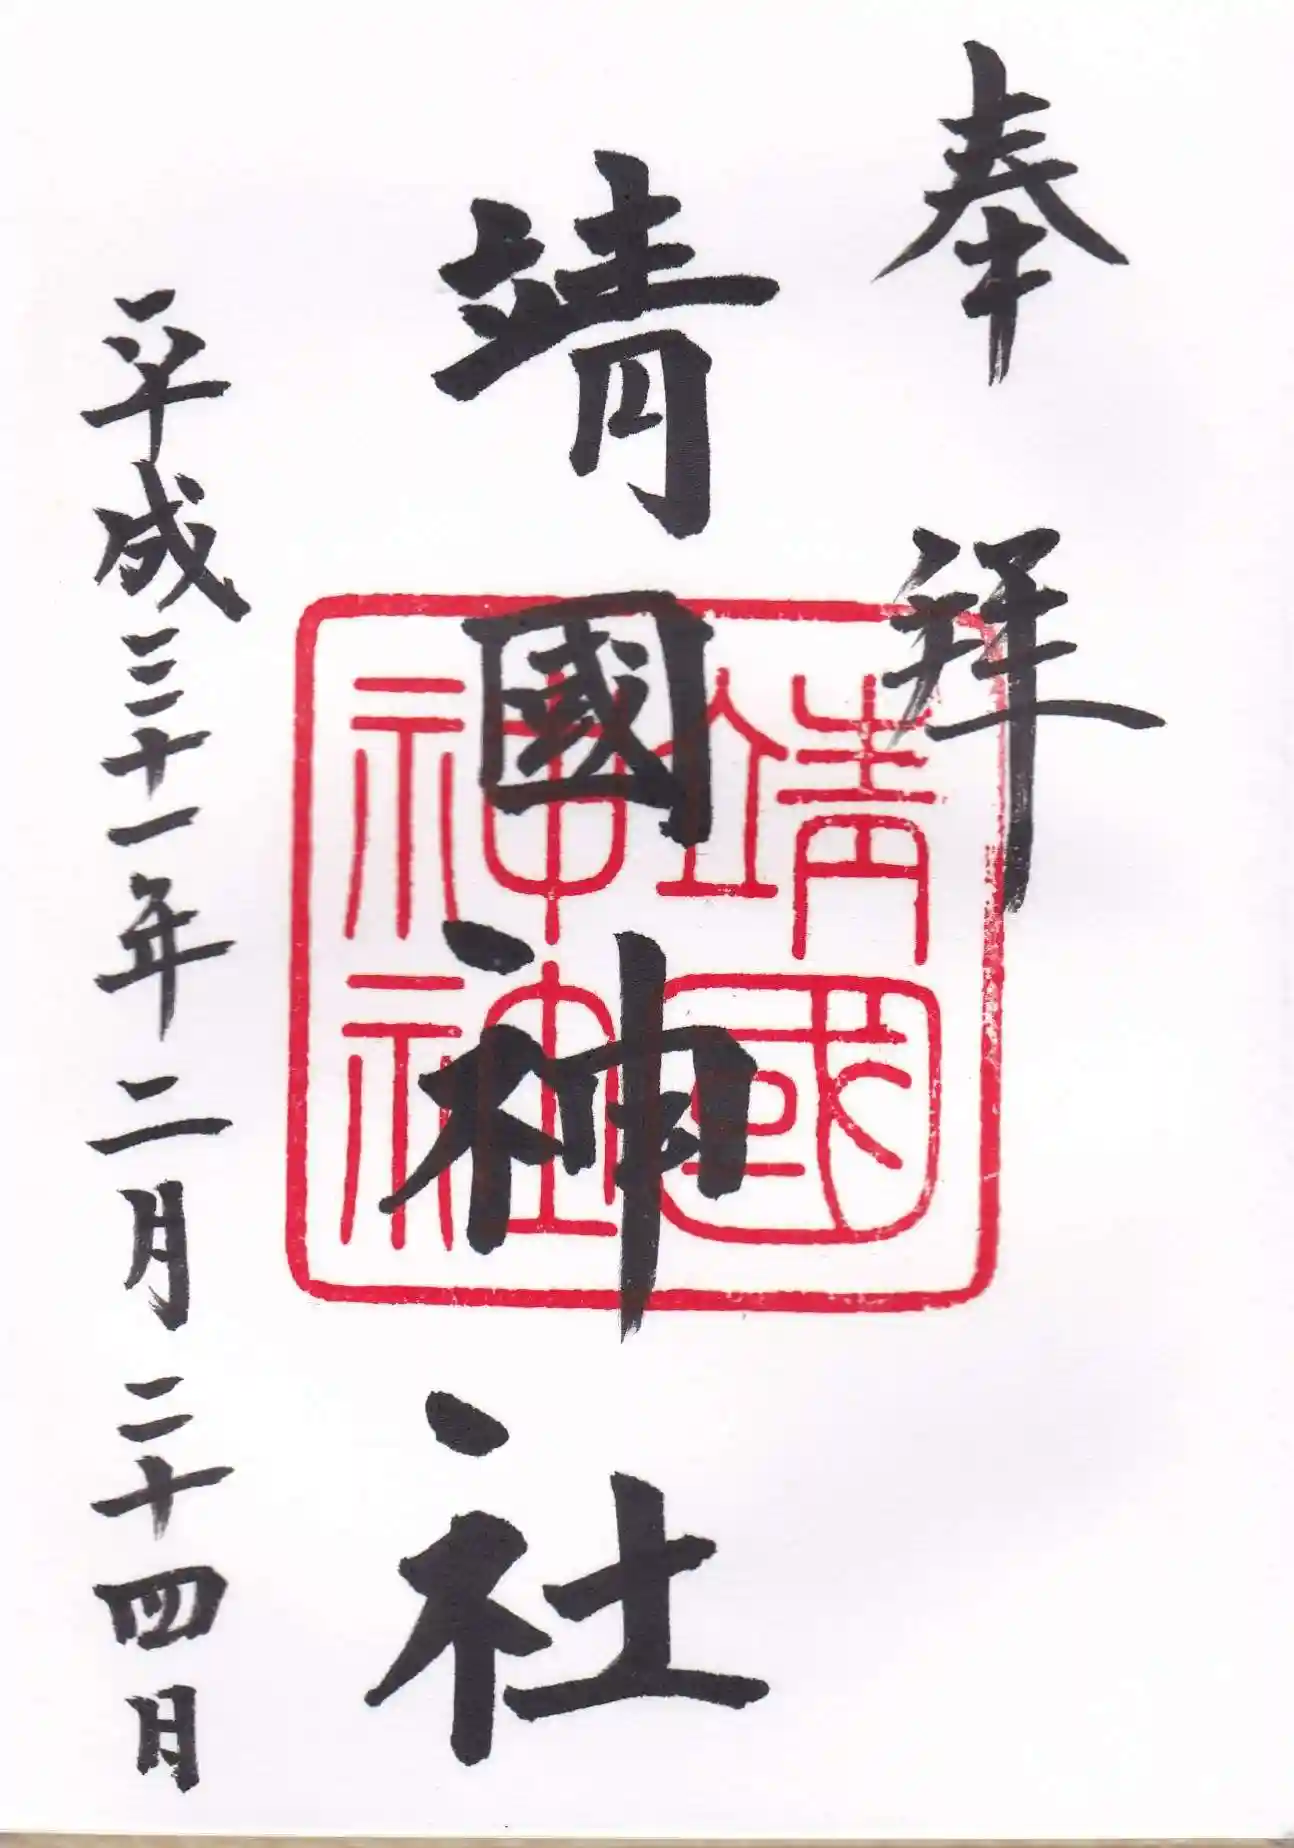 奉拜
靖國神社
靖國
神社
平成三十一年二月二十四日